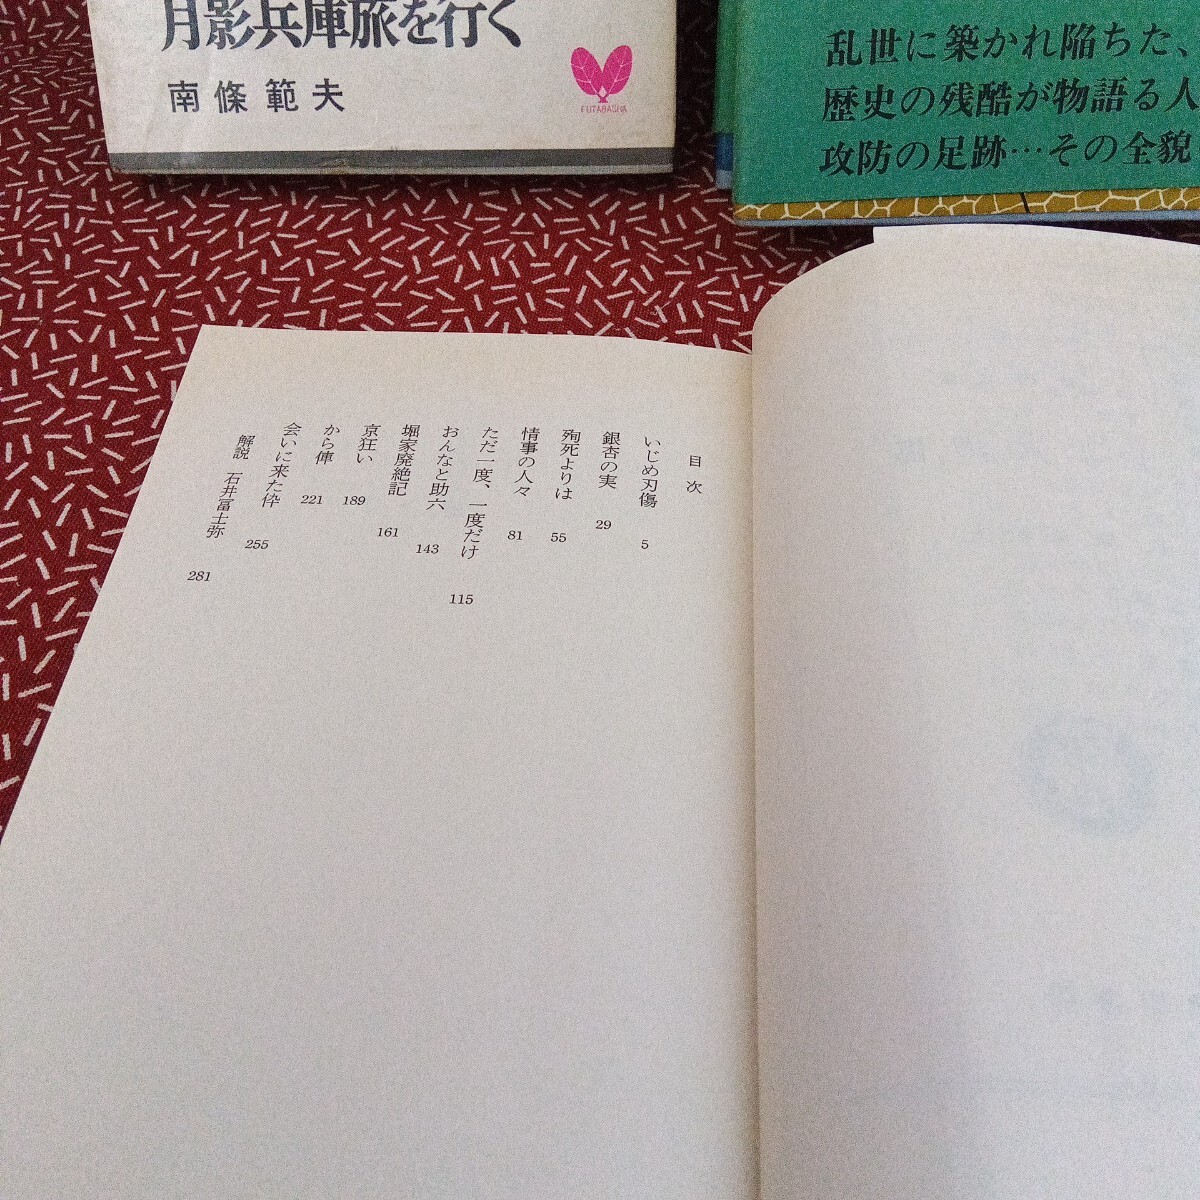 月影兵庫旅を行く
南條範夫
FUTABASHA
乱世に築かれ陥ちた、
歴史の残酷が物語る人
攻防の足跡…その全貌
目次
いじめ刃傷 5
銀杏の実 29
殉死よりは 55
情事の人々 81
ただ一度、一度だけ 115
おんなと助六 143
堀家廃絶記 161
京狂い 189
から俥 221
会いに来た伜 255
解説 石井冨士弥 281